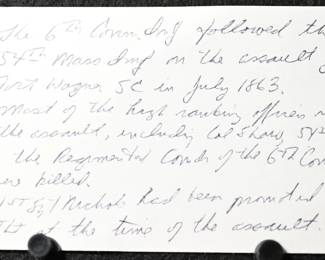 The 6th Conn. Inf followed the
54th Mass Inf on the assault of
Fort Wagner SC in July 1863.
Most of the high ranking officers
the assault, including Col Shaw, 54th
the Regimental Comdr of the 6th Con
ere killed.
1st Sgt Nichols had been promoted
at the time of the assault.